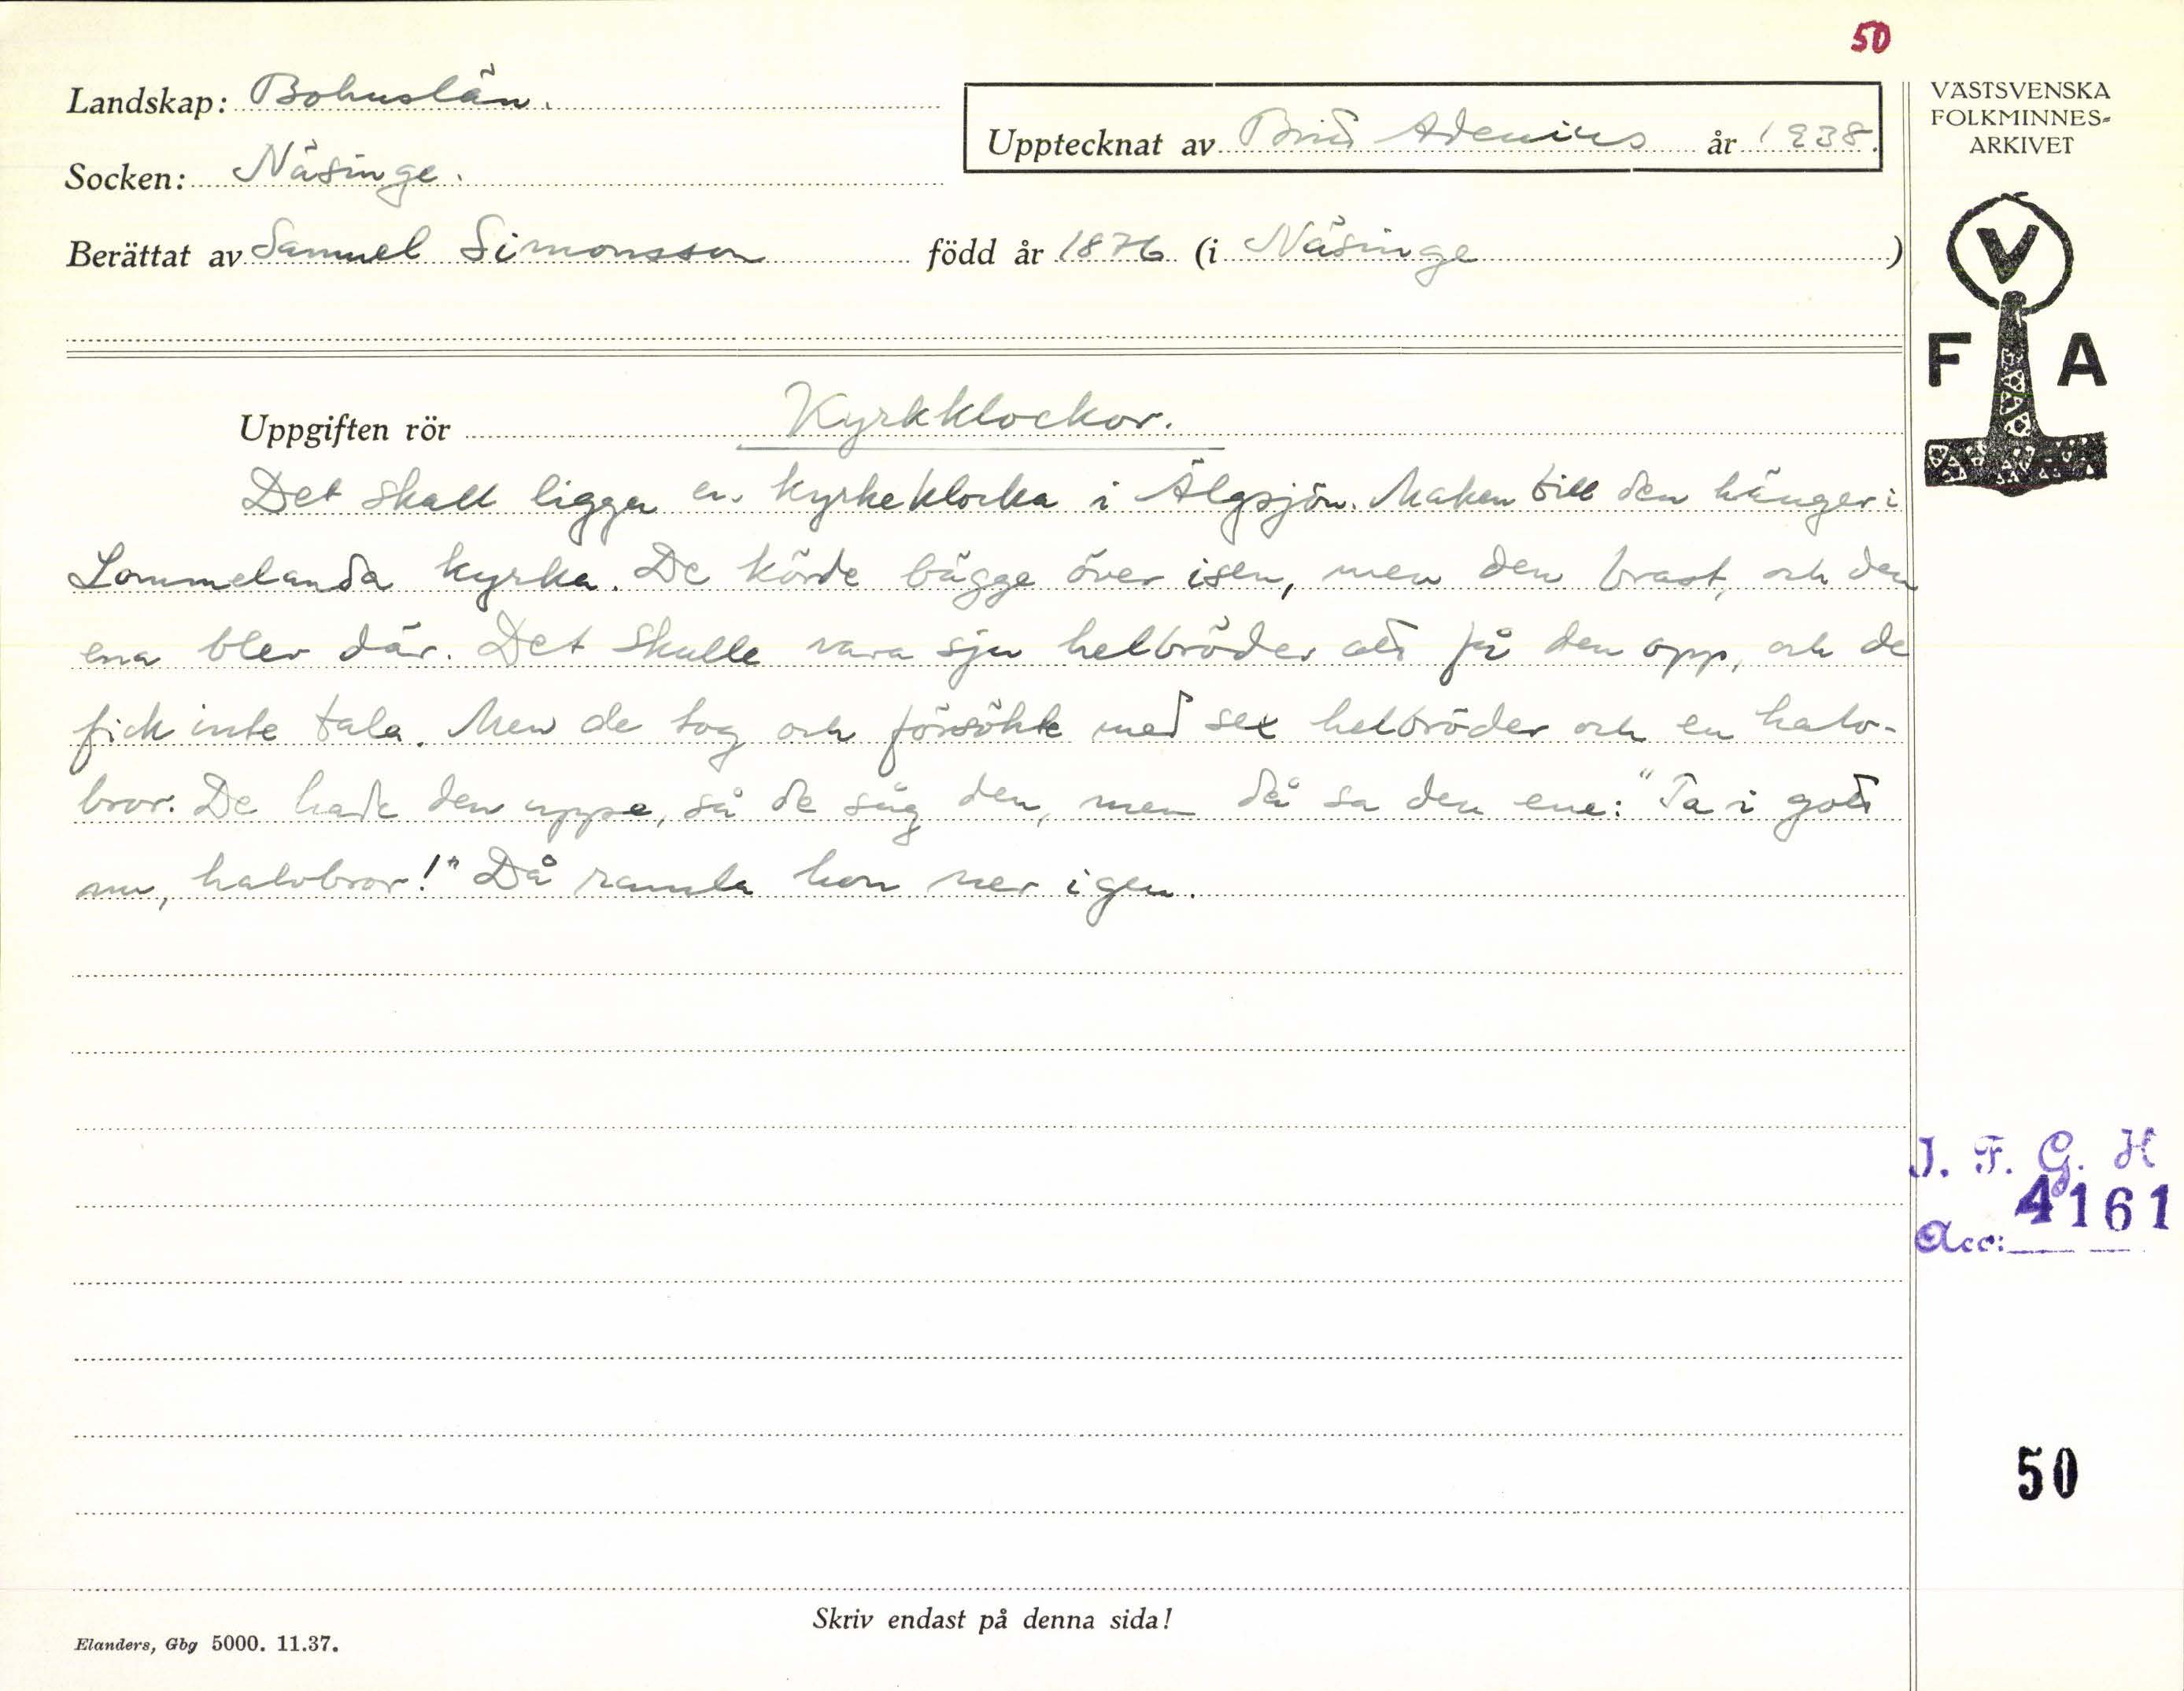 50
Landskap: Bohuslän.
Upptecknat av Brita Adenius år 1938.
VÄSTSVENSKA
FOLKMINNES-
ARKIVET
Socken: Näsinge.
Berättat av Samuel Simonsson född år 1876 (i Näsinge )
V
F A
Uppgiften rör Kyrkklockor.
Det skall ligga en kyrkeklocka i Älgsjön. Maken till den hänger i
Lommelanda kyrka. De körde bägge över isen, men den brast, och den
ena blev där. Det skulle vara sju helbröder att få den opp, och de
fick inte tala. Men de tog och försökte med sex helbröder och en halv-
bror. De hade den uppe, så de såg den, men då sa den ene: "Ta i gott
nu, halvbror!" Då ramla hon ner igen.
I. F. G. H
4161
Acc:
50
Skriv endast på denna sida!
Elanders, Gbg 5000. 11.37.